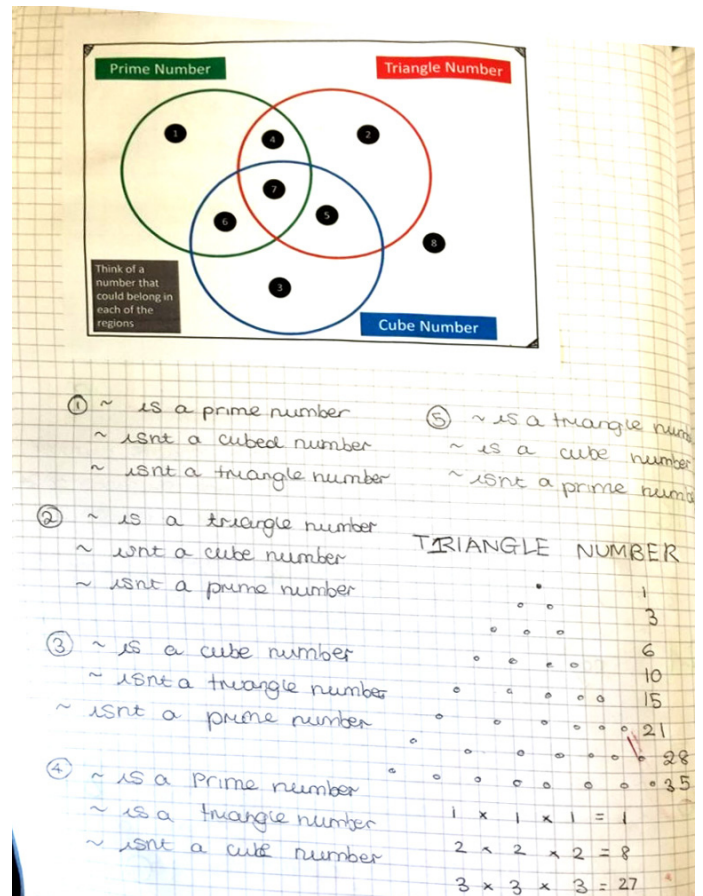 Prime Number
Triangle Number
1
4
2
7
6
5
8
3
Think of a
number that
could belong in
each of the
regions
Cube Number
① ~ is a prime number
~ isnt a cubed number
~ isnt a triangle number
② ~ is a triangle number
~ isnt a cube number
~ isnt a prime number
③ ~ is a cube number
~ isnt a triangle number
~ isnt a prime number
④ ~ is a Prime number
~ is a triangle number
~ isnt a cube number
⑤ ~ is a triangle numb
~ is a cube number
~ isnt a prime numb
TRIANGLE NUMBER
1
3
6
10
15
21
28
35
1 × 1 × 1 = 1
2 × 2 × 2 = 8
3 × 3 × 3 = 27